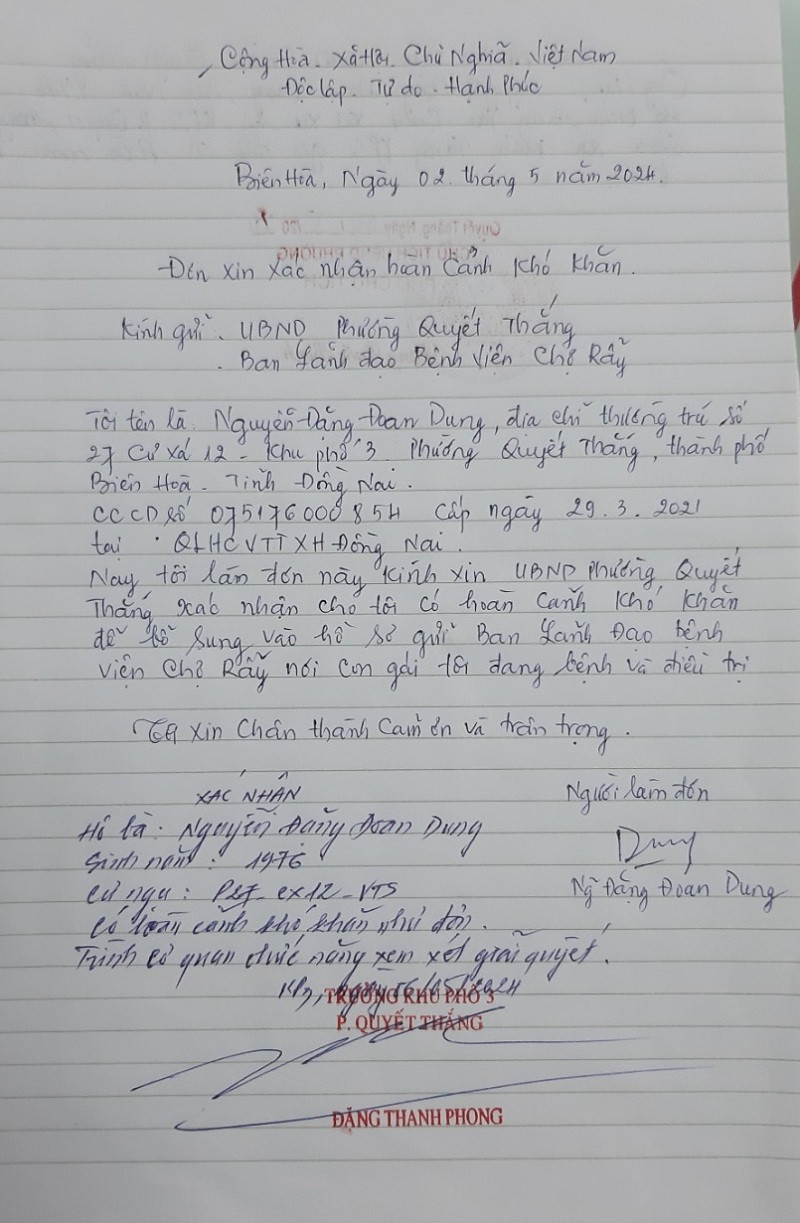 Cộng Hòa. Xã Hội. Chủ Nghĩa. Việt Nam
Độc lập. Tự do. Hạnh Phúc
Biên Hòa, Ngày 02 tháng 5 năm 2024.
Đơn xin xác nhận hoàn cảnh khó khăn.
Kính gửi. UBND Phường Quyết Thắng
. Ban Lãnh đạo Bệnh Viện Chợ Rẫy
Tôi tên là Nguyễn Đặng Đoan Dung, địa chỉ thường trú số
27 Cư xá 12 - Khu phố 3 Phường Quyết Thắng, thành phố
Biên Hoà - Tỉnh Đồng Nai.
CCCD số 075176000854 cấp ngày 29.3.2021
tại QLHCVTTXH Đồng Nai.
Nay tôi làm đơn này kính xin UBND Phường Quyết
Thắng xác nhận cho tôi có hoàn cảnh khó khăn
để bổ sung vào hồ sơ gửi Ban Lãnh Đạo bệnh
viện Chợ Rẫy nơi con gái tôi đang bệnh và điều trị
Tôi xin chân thành cảm ơn và trân trọng.
XÁC NHẬN
Người làm đơn
Hộ là: Nguyễn Đặng Đoan Dung
Sinh năm: 1976
Dung
Cư ngụ: cx12-VTS
Ng Đặng Đoan Dung
Có hoàn cảnh khó khăn như đơn.
Trình cơ quan chức năng xem xét giải quyết.
KP3, ngày 06/05/2024
TRƯỞNG KHU PHỐ 3
P. QUYẾT THẮNG
ĐẶNG THANH PHONG